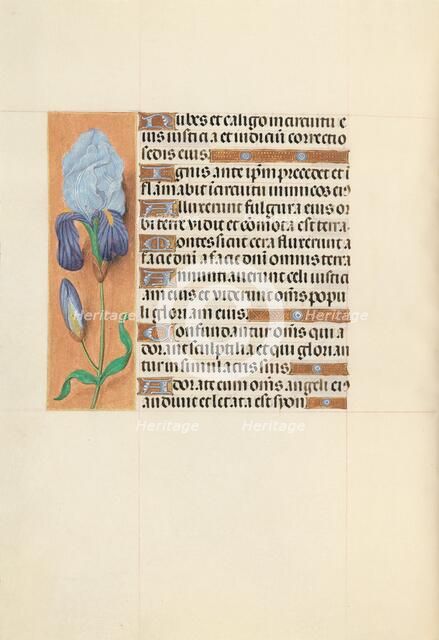 Nubes et caligo in circuitu e
ius iusticia et iudiciū correctio
sedis eius
Ignis ante ip̄m precedet et ī
flammabit ī circuitu inimicoz eiꝰ
Alluxerunt fulgura eius or
bi terre vidit et cōmota est terra
Montes sicut cera fluxerunt a
facie dn̄i a facie dn̄i omnis terra
Annuntiauerunt celi iustici
am eius et viderunt om̄s popu
li gloriam eius
Confundantur om̄s qui a
dorant sculptilia et qui glorian
tur in simulacris suis
Adorate eum om̄s angeli eiꝰ
audiuit et letata est syon
Heritage Heritage Heritage
Heritage Heritage Heritage